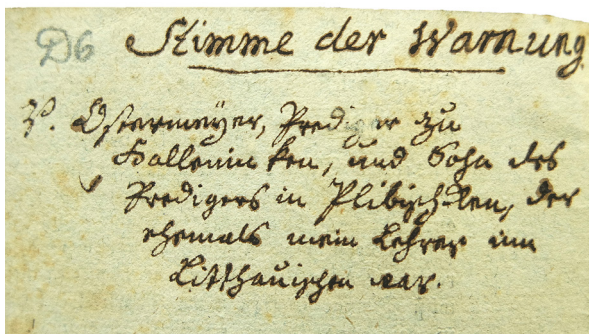 D6 Stimme der Warnung
V. Ostermeyer, Prediger zu
Kallenincken, und Sohn des
Predigers in Plibischken, der
ehemals mein Lehrer im
Litthauischen war.